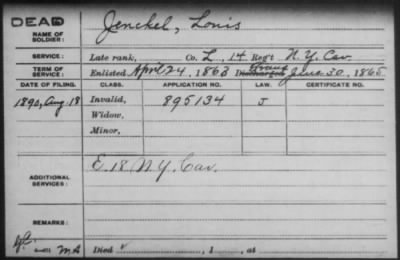 DEAD
NAME OF SOLDIER:
Jenckel, Louis
SERVICE:
Late rank, Co. L, 14 Reg't N.Y. Cav.
TERM OF SERVICE:
Enlisted April 24, 1863 Discharged June 30, 1865
DATE OF FILING. CLASS. APPLICATION NO. LAW. CERTIFICATE NO.
1890, Aug. 18 Invalid, 895134 J
Widow,
Minor,
ADDITIONAL SERVICES:
E. 18 N.Y. Cav.
REMARKS:
Died , 1 , at